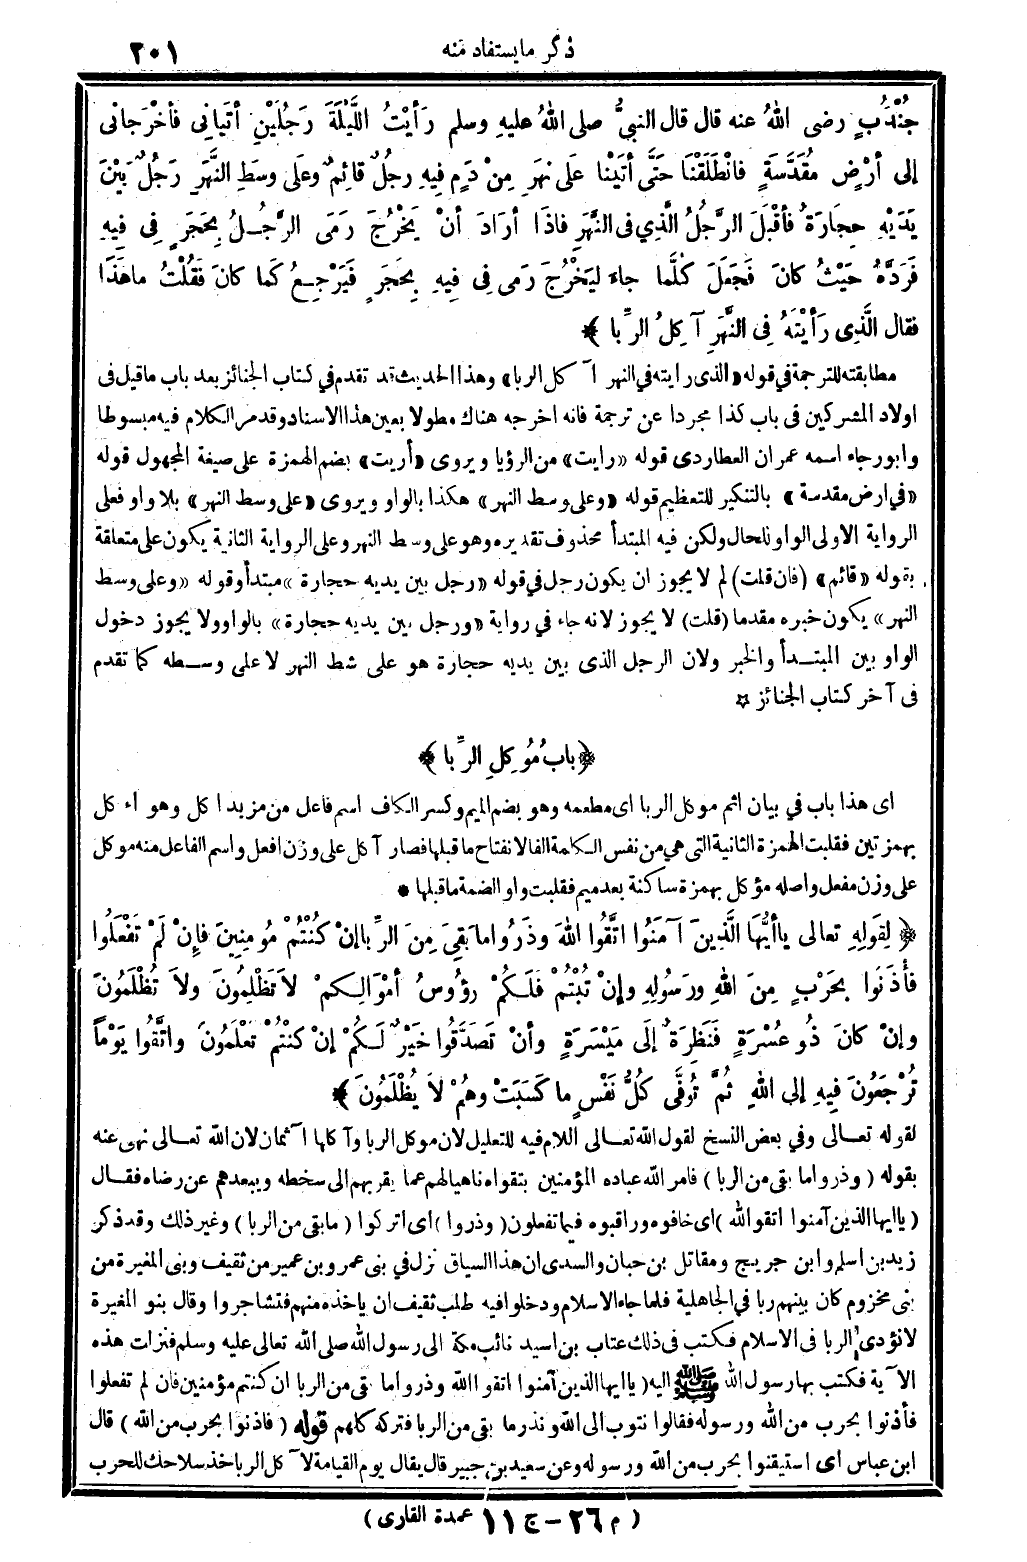 ذكر ما يستفاد منه ٢٠١
جُنْدَبٍ رضى اللهُ عنه قال قال النبيُّ صلى اللهُ عليهِ وسلم رَأَيْتُ اللَّيْلَةَ رَجُلَيْنِ أَتَيانِى فأخْرَجانى
إلى أرْضٍ مُقَدَّسَةٍ فانْطَلَقْنا حَتَّى أتَيْنا عَلَى نَهرٍ مِنْ دَمٍ فيهِ رجُلٌ قائِمٌ وعَلَى وسَطِ النَّهَرِ رَجُلٌ بَيْنَ
يَدَيْهِ حِجارَةٌ فأقْبَلَ الرَّجُلُ الَّذِي فى النَّهَرِ فاذَا أرَادَ أنْ يَخْرُجَ رَمَى الرَّجُلُ بِحَجَرٍ فى فِيهِ
فَرَدَّهُ حَيْثُ كانَ فَجَعَلَ كُلَّما جاءَ ليَخْرُجَ رمى فى فِيهِ بِحَجَرٍ فَيَرْجِعُ كَما كانَ فَقُلْتُ ما هَذَا
فقال الَّذِى رَأَيْتَهُ فِى النَّهَرِ آكِلُ الرِّبا ﴾
مطابقته للترجمة في قوله «الذى رايته في النهر آكل الربا» وهذا الحديث قد تقدم في كتاب الجنائز بعد باب ما قيل فى
اولاد المشركين فى باب كذا مجردا عن ترجمة فانه اخرجه هناك مطولا بعين هذا الاسناد وقد مر الكلام فيه مبسوطا
وابو رجاء اسمه عمران العطاردى قوله «رايت» من الرؤيا ويروى «أريت» بضم الهمزة على صيغة المجهول قوله
«في ارض مقدسة» بالتنكير للتعظيم قوله «وعلى وسط النهر» هكذا بالواو ويروى «على وسط النهر» بلا واو فعلى
الرواية الاولى الواو للحال ولكن فيه المبتدأ محذوف تقديره وهو على وسط النهر وعلى الرواية الثانية يكون على متعلقة
بقوله «قائم» (فان قلت) لم لا يجوز ان يكون رجل في قوله «رجل بين يديه حجارة» مبتدأ وقوله «وعلى وسط
النهر» يكون خبره مقدما (قلت) لا يجوز لانه جاء في رواية «ورجل بين يديه حجارة» بالواو ولا يجوز دخول
الواو بين المبتدأ والخبر ولان الرجل الذى بين يديه حجارة هو على شط النهر لا على وسطه كما تقدم
فى آخر كتاب الجنائز ✡
﴿ بابُ مُوكِلِ الرِّبا ﴾
اى هذا باب في بيان اثم موكل الربا اى مطعمه وهو بضم الميم وكسر الكاف اسم فاعل من مزيد اكل وهو أءكل
بهمزتين فقلبت الهمزة الثانية التى هي من نفس الكلمة الفا لانفتاح ما قبلها فصار آكل على وزن افعل واسم الفاعل منه موكل
على وزن مفعل واصله مؤكل بهمزة ساكنة بعد ميم فقلبت واوا لضمة ما قبلها *
﴿ لِقولِهِ تعالى ياأيُّها الَّذِينَ آمَنُوا اتَّقُوا اللهَ وذَرُوا ما بَقِيَ مِنَ الرِّبا إنْ كُنْتُمْ مُؤمِنِينَ فإِنْ لَمْ تَفْعَلُوا
فأْذَنُوا بِحَرْبٍ مِنَ اللهِ ورَسُولِهِ وإنْ تُبْتُمْ فَلَكُمْ رؤُوسُ أمْوَالِكمْ لاَ تَظْلِمُونَ ولاَ تُظْلَمُونَ
وإنْ كانَ ذُو عُسْرَةٍ فَنَظِرَةٌ إلَى مَيْسَرَةٍ وأنْ تَصَدَّقُوا خَيْرٌ لَكُمْ إنْ كُنْتُمْ تَعْلَمُونَ واتَّقُوا يَوْماً
تُرْجَعُونَ فِيهِ إلى اللهِ ثُمَّ تُوفَّى كُلُّ نَفْسٍ ما كَسَبَتْ وهُمْ لاَ يُظْلَمُونَ ﴾
لقوله تعالى وفي بعض النسخ لقول الله تعالى اللام فيه للتعليل لان موكل الربا وآكلها آثمان لان الله تعالى نهى عنه
بقوله (وذروا ما بقى من الربا) فامر الله عباده المؤمنين بتقواه ناهيا لهم عما يقربهم الى سخطه ويبعدهم عن رضاه فقال
(ياايها الذين آمنوا اتقوا الله) اى خافوه وراقبوه فيما تفعلون (وذروا) اى اتركوا (ما بقى من الربا) وغير ذلك وقد ذكر
زيد بن اسلم وابن جريج ومقاتل بن حبان والسدى ان هذا السياق نزل في بنى عمرو بن عمير من ثقيف وبنى المغيرة من
بنى مخزوم كان بينهم ربا في الجاهلية فلما جاء الاسلام ودخلوا فيه طلب ثقيف ان ياخذه منهم فتشاجروا وقال بنو المغيرة
لا نؤدى الربا فى الاسلام فكتب فى ذلك عتاب بن اسيد نائب مكة الى رسول الله صلى الله تعالى عليه وسلم فنزلت هذه
الآية فكتب بها رسول الله ﷺ اليه (ياايها الذين آمنوا اتقوا الله وذروا ما بقى من الربا ان كنتم مؤمنين فان لم تفعلوا
فأذنوا بحرب من الله ورسوله فقالوا نتوب الى الله ونذر ما بقى من الربا فتركه كلهم قوله (فاذنوا بحرب من الله) قال
ابن عباس أى استيقنوا بحرب من الله ورسوله وعن سعيد بن جبير قال يقال يوم القيامة لآكل الربا خذ سلاحك للحرب
(م ٢٦ - ج ١١ عمدة القارى)